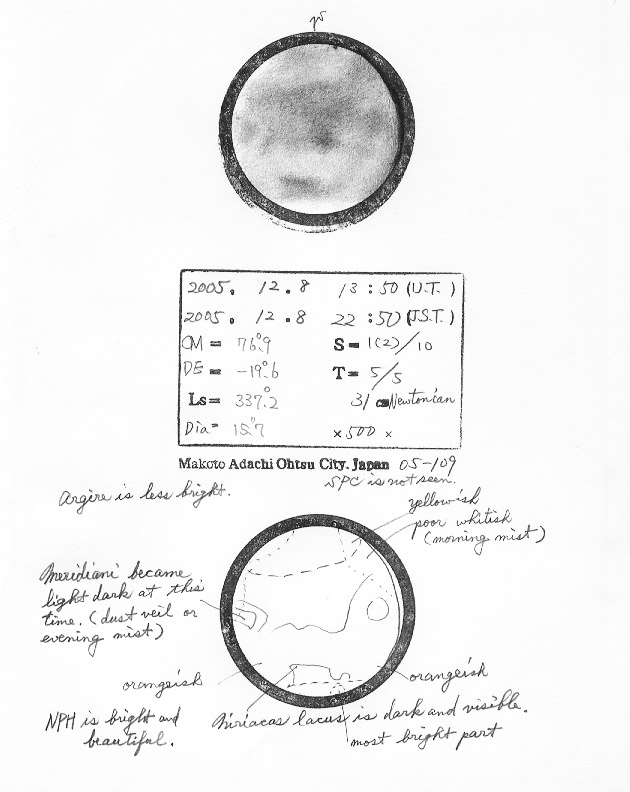 2005. 12.8 13:50 (U.T.)
2005. 12.8 22:50 (J.S.T.)
CM = 76°.9 S = 1(2)/10
DE = -19°.6 T = 5/5
Ls = 337°.2 31 cm Newtonian
Dia = 15".7 ×500 ×
Makoto Adachi Ohtsu City. Japan 05-109
SPC is not seen.
Argire is less bright.
yellowish
poor whitish
(morning mist)
Meridiani became
light dark at this
time. (dust veil or
evening mist)
orangeish
orangeish
NPH is bright and
beautiful.
Niriacas lacus is dark and visible.
most bright part